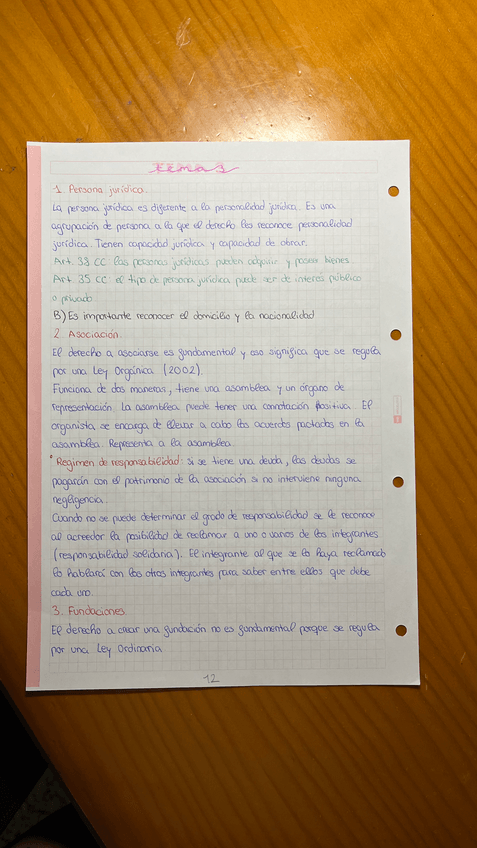 TEMA 3
1. Persona jurídica.
La persona jurídica es diferente a la personalidad jurídica. Es una
agrupación de persona a la que el derecho les reconoce personalidad
jurídica. Tienen capacidad jurídica y capacidad de obrar.
Art. 38 CC las personas jurídicas pueden adquirir y poseer bienes.
Art. 35 CC el tipo de persona jurídica puede ser de interés público
o privado
B) Es importante reconocer el domicilio y la nacionalidad
2. Asociación.
El derecho a asociarse es fundamental y eso significa que se regula
por una Ley Orgánica (2002).
Funciona de dos maneras, tiene una asamblea y un órgano de
representación. La asamblea puede tener una connotación positiva. El
organista, se encarga de llevar a cabo los acuerdos pactados en la
asamblea. Representa a la asamblea.
* Regimen de responsabilidad: si se tiene una deuda, las deudas se
pagarán con el patrimonio de la asociación si no interviene ninguna
negligencia.
Cuando no se puede determinar el grado de responsabilidad se le reconoce
al acreedor la posibilidad de reclamar a uno o varios de los integrantes
(responsabilidad solidaria). El integrante al que se lo haya reclamado
lo hablará con los otros integrantes para saber entre ellos que debe
cada uno.
3. Fundaciones
El derecho a crear una fundación no es fundamental porque se regula
por una Ley Ordinaria
12